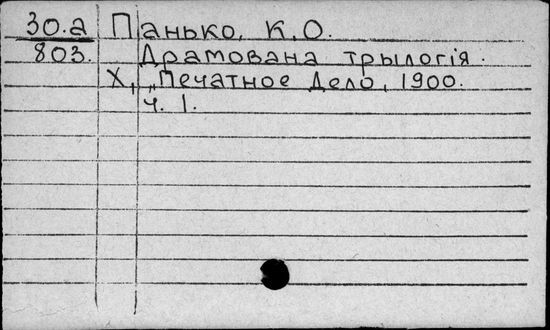 30.а Панько, К.О.
803. Драмована трылогія.
Х, „Печатное Дело, 1900.
ч. 1.